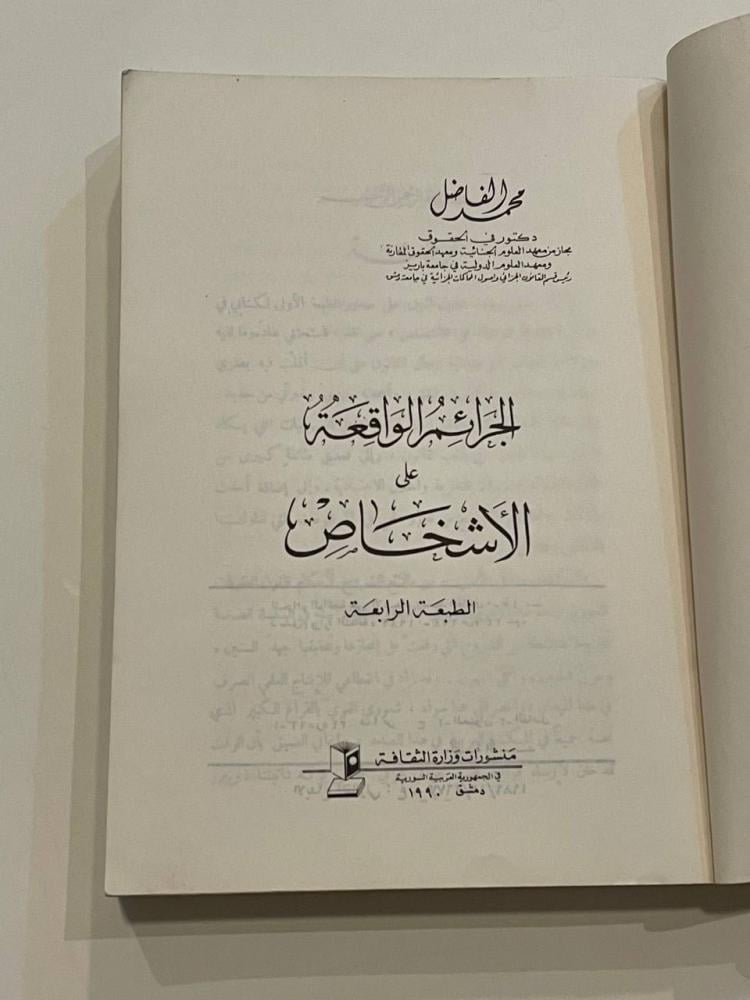 محمد الفاضل
دكتور في الحقوق
مجاز من معهد العلوم الجنائية ومعهد الحقوق المقارنة
ومعهد العلوم الدولية في جامعة باريز
رئيس قسم القانون الجزائي وأصول المحاكمات الجزائية في جامعة دمشق
الجَرَائِمُ الوَاقِعَةُ
على
الأَشْخَاصِ
الطبعة الرابعة
منشورات وزارة الثقافة
في الجمهورية العربية السورية
دمشق ١٩٩٠